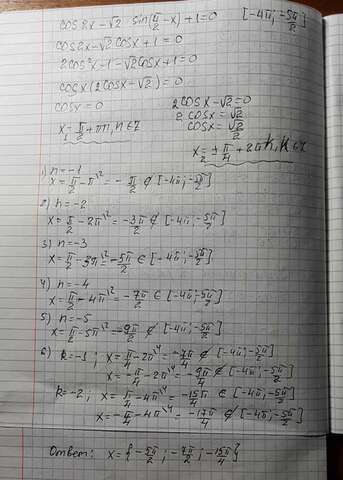 cos2x-√2 sin(π/2-x)+1=0 [-4π;-5π/2]
cos2x-√2cosx+1=0
2cos²x-1-√2cosx+1=0
cosx(2cosx-√2)=0
cosx=0 2cosx-√2=0
2cosx=√2
cosx=√2/2
x₁=π/2+πn, n∈Z
x₂=±π/4+2πk, k∈Z
1) n=-1
x=π/2-π\²=-π/2 ∉ [-4π;-5π/2]
2) n=-2
x=π/2-2π\²=-3π/2 ∉ [-4π;-5π/2]
3) n=-3
x=π/2-3π\²=-5π/2 ∈ [-4π;-5π/2]
4) n=-4
x=π/2-4π\²=-7π/2 ∈ [-4π;-5π/2]
5) n=-5
x=π/2-5π\²=-9π/2 ∉ [-4π;-5π/2]
6) k=-1; x=π/4-2π\⁴=-7π/4 ∉ [-4π;-5π/2]
x=-π/4-2π\⁴=-9π/4 ∉ [-4π;-5π/2]
k=-2; x=π/4-4π\⁴=-15π/4 ∈ [-4π;-5π/2]
x=-π/4-4π\⁴=-17π/4 ∉ [-4π;-5π/2]
Ответ: x={-5π/2;-7π/2;-15π/4}